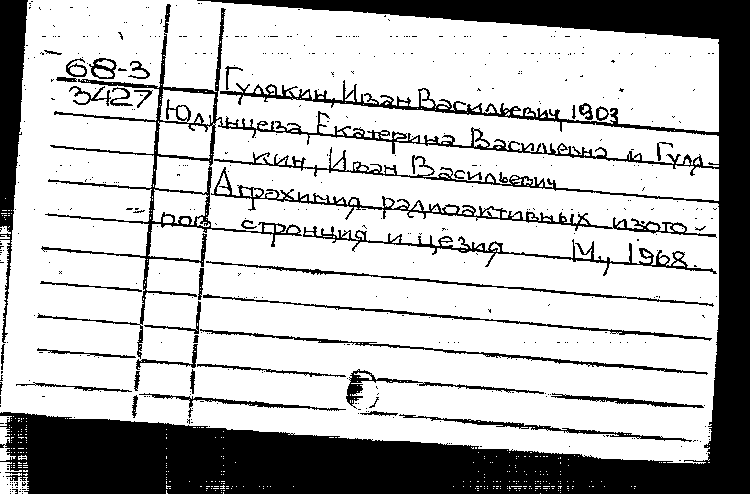 68-3
3427
Гулякин, Иван Васильевич, 1903
Юдинцева, Екатерина Васильевна и Гуля-
кин, Иван Васильевич
Агрохимия радиоактивных изото-
пов стронция и цезия М., 1968.